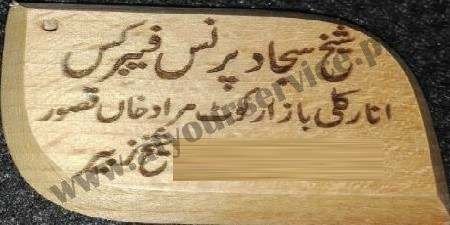 شیخ سجاد پرنس فیبرکس
انار کلی بازار کوٹ مراد خاں قصور
شیخ زبیر